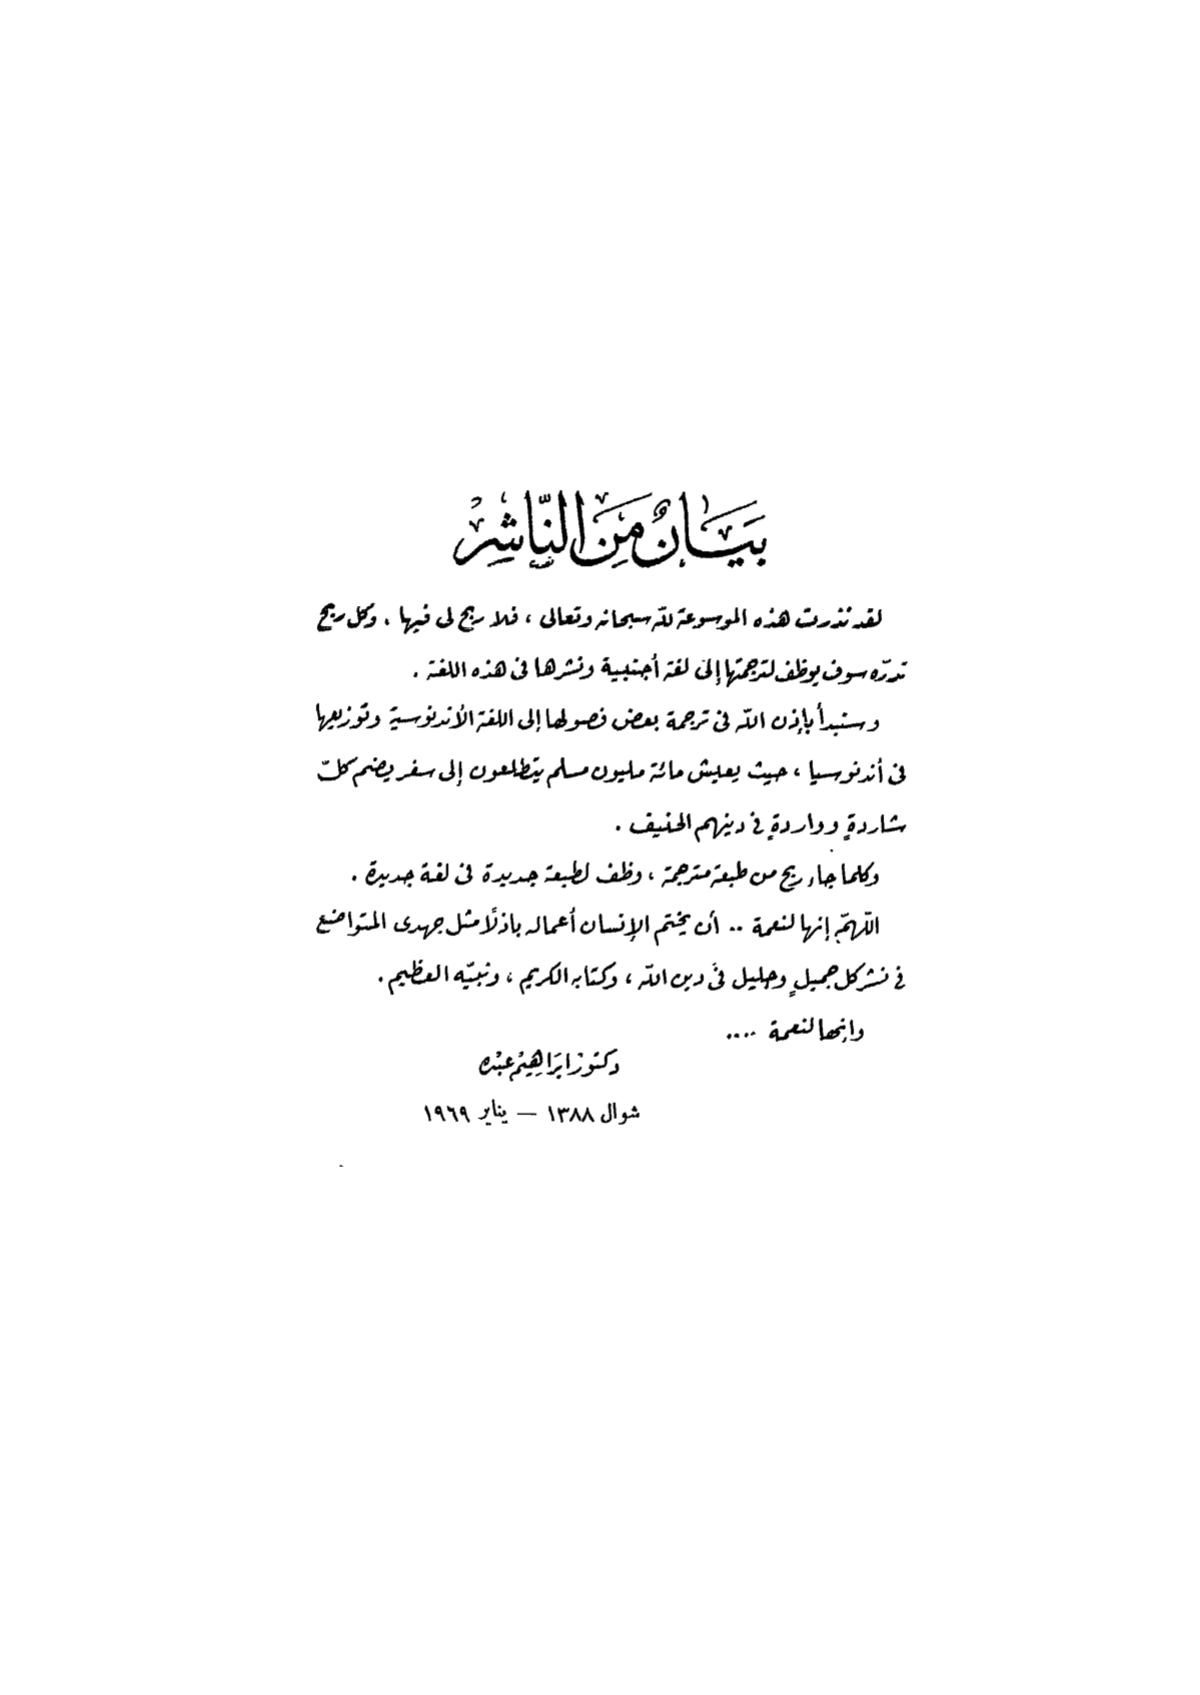 بَيَانٌ مِنَ النَّاشِرْ
لقد نذرت هذه الموسوعة لله سبحانه وتعالى ، فلا ربح لى فيها . وكل ربح
تدرّه سوف يوظف لترجمتها إلى لغة أجنبية ونشرها فى هذه اللغة .
وسنبدأ بإذن الله فى ترجمة بعض فصولها إلى اللغة الأندنوسية وتوزيعها
فى أندنوسيا ، حيث يعيش مائة مليون مسلم يتطلعون إلى سفر يضم كلّ
شاردةٍ وواردةٍ فى دينهم الحنيف .
وكلما جاء ربح من طبعة مترجمة ، وظف لطبعة جديدة فى لغة جديدة .
اللّهمّ إنها لنعمة .. أن يختم الإنسان أعماله باذلًا مثل جهدى المتواضع
فى نشر كل جميلٍ وجليل فى دين الله ، وكتابه الكريم ، ونبيّه العظيم .
وإنها لنعمة ....
دكتور إبراهيم عبده
شوال ١٣٨٨ — يناير ١٩٦٩